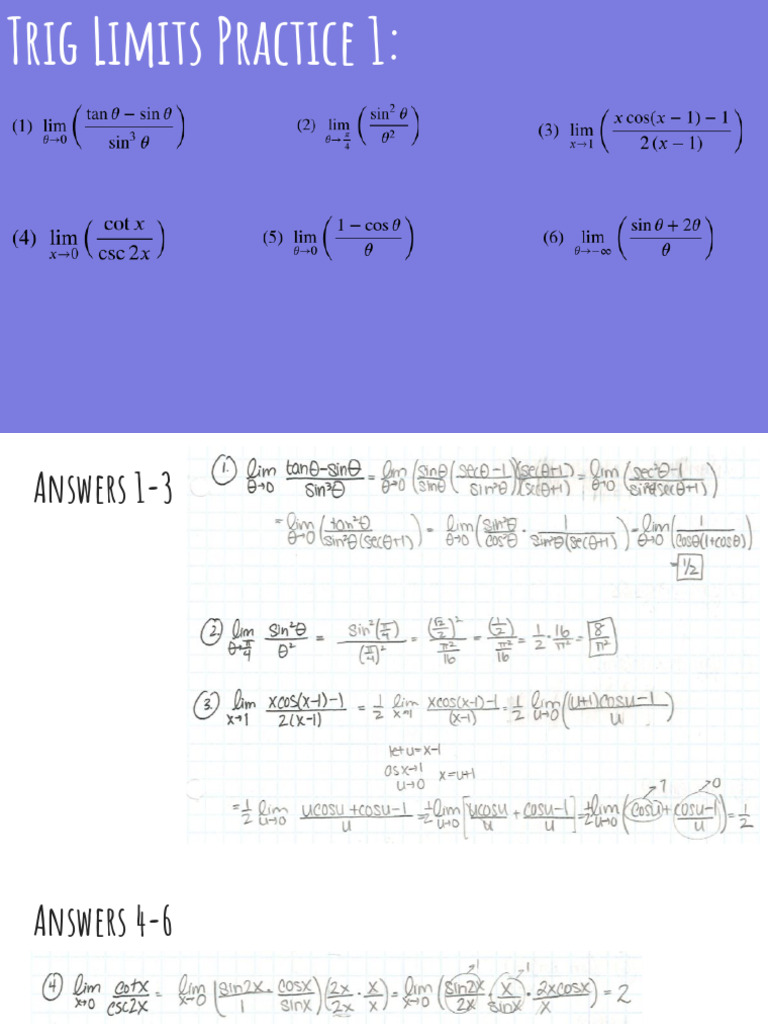 Trig Limits Practice 1:
(1) lim θ→0 ( (tan θ − sin θ) / (sin³ θ) ) (2) lim θ→π/4 ( (sin² θ) / θ² ) (3) lim x→1 ( (x cos(x − 1) − 1) / (2 (x − 1)) )
(4) lim x→0 ( (cot x) / (csc 2x) ) (5) lim θ→0 ( (1 − cos θ) / θ ) (6) lim θ→−∞ ( (sin θ + 2θ) / θ )
Answers 1-3
1. lim θ→0 (tanθ-sinθ)/(sin³θ) = lim θ→0 (sinθ/sinθ ((secθ-1)/(sin²θ)) (sec(θ+1)/(sec(θ+1)) = lim θ→0 ((sec²θ-1)/(sin²θ(secθ+1))
= lim θ→0 (tan²θ/(sin²θ(secθ+1)) = lim θ→0 (sin²θ/cos²θ · 1/(sin²θ(secθ+1)) = lim θ→0 (1/(cosθ(1+cosθ))
= 1/2
2. lim θ→π/4 sin²θ/θ² = sin²(π/4)/(π/4)² = (√2/2)²/(π²/16) = (1/2)/(π²/16) = 1/2 · 16/π² = 8/π²
3. lim x→1 (xcos(x-1)-1)/(2(x-1)) = 1/2 lim x→1 (xcos(x-1)-1)/(x-1) = 1/2 lim u→0 (((u+1)cosu-1)/u)
let u=x-1
as x→1 x=u+1
u→0
= 1/2 lim u→0 (ucosu+cosu-1)/u = 1/2 lim u→0 [ucosu/u + (cosu-1)/u] = 1/2 lim u→0 (cosu + (cosu-1)/u) = 1/2
1 0
Answers 4-6
4 lim x→0 cotx/csc2x = lim x→0 (sin2x/1 · cosx/sinx)(2x/2x · x/x) = lim x→0 (sin2x/2x · x/sinx · 2xcosx/x) = 2
1 1